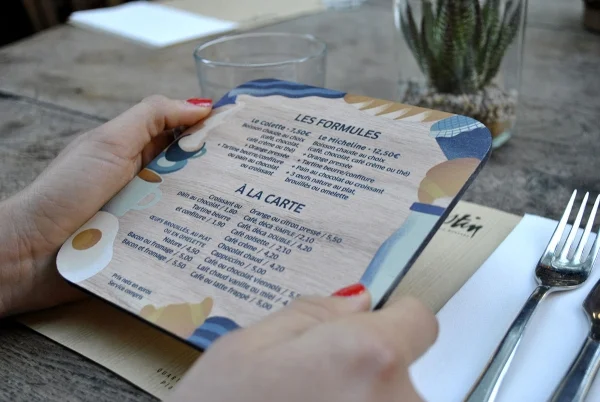 LES FORMULES
Le Colette - 7,50€
Boisson chaude au choix
(café, chocolat,
café crème ou thé)
• Orange pressée
• Tartine beurre/confiture
ou pain au chocolat
ou croissant
Le Micheline - 12,50€
Boisson chaude au choix
(café, chocolat, café crème ou thé)
• Orange pressée
• Pain au chocolat ou croissant
• 3 œufs nature au plat,
brouillés ou omelette
À LA CARTE
Croissant ou
pain au chocolat / 1,80
Tartine beurre
et confiture / 1,90
ŒUFS BROUILLÉS, AU PLAT
OU EN OMELETTE
Nature / 4,50
Bacon ou fromage / 5,00
Bacon et fromage / 5,50
Orange ou citron pressé / 5,50
Café, déca SIMPLE / 2,10
Café, déca DOUBLE / 4,20
Café noisette / 2,10
Café crème / 4,20
Chocolat chaud / 4,20
Cappuccino / 5,00
Café ou chocolat viennois / 5,00
Lait chaud vanille ou miel /
Café ou latte frappé / 5,00
Prix nets en euros
Service compris